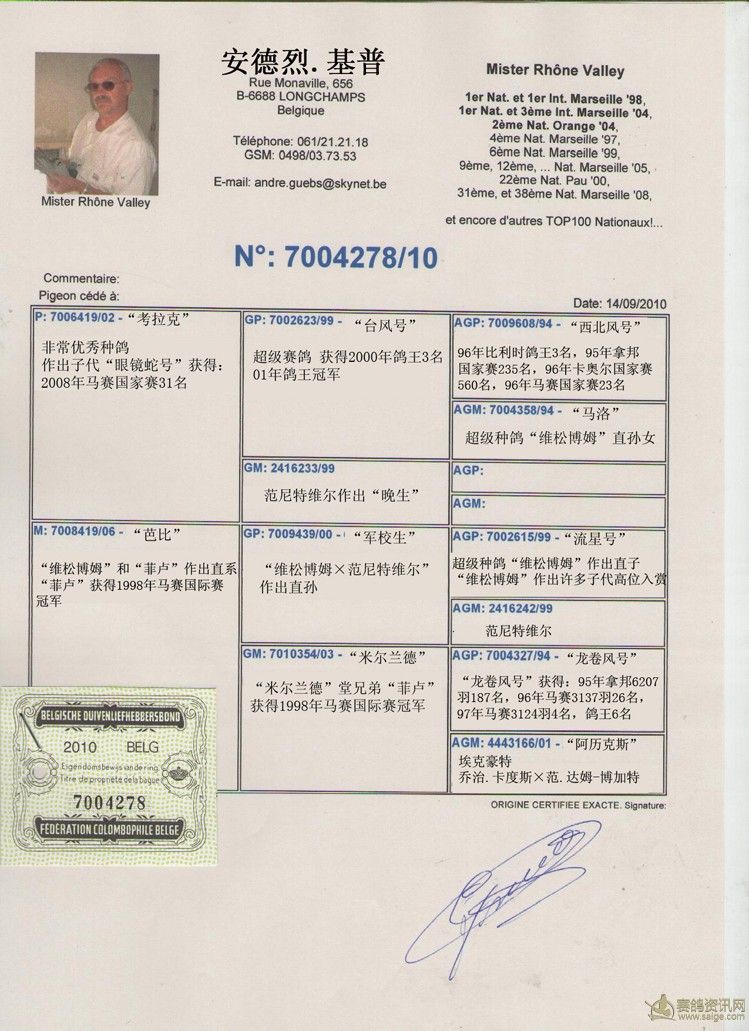 安德烈.基普
Rue Monaville, 656
B-6688 LONGCHAMPS
Belgique
Téléphone: 061/21.21.18
GSM: 0498/03.73.53
E-mail: andre.guebs@skynet.be
Mister Rhône Valley
Mister Rhône Valley
1er Nat. et 1er Int. Marseille '98,
1er Nat. et 3ème Int. Marseille '04,
2ème Nat. Orange '04,
4ème Nat. Marseille '97,
6ème Nat. Marseille '99,
9ème, 12ème, ... Nat. Marseille '05,
22ème Nat. Pau '00,
31ème, et 38ème Nat. Marseille '08,
et encore d'autres TOP100 Nationaux!...
N°: 7004278/10
Commentaire:
Pigeon cédé à:
Date: 14/09/2010
P: 7006419/02 - “考拉克”
非常优秀种鸽
作出子代“眼镜蛇号”获得:
2008年马赛国家赛31名
GP: 7002623/99 - “台风号”
超级赛鸽 获得2000年鸽王3名
01年鸽王冠军
AGP: 7009608/94 - “西北风号”
96年比利时鸽王3名，95年拿邦
国家赛235名，96年卡奥尔国家赛
560名，96年马赛国家赛23名
AGM: 7004358/94 - “马洛”
超级种鸽“维松博姆”直孙女
GM: 2416233/99
范尼特维尔作出“晚生”
AGP:
AGM:
M: 7008419/06 - “芭比”
“维松博姆”和“菲卢”作出直系
“菲卢”获得1998年马赛国际赛
冠军
GP: 7009439/00 - “军校生”
“维松博姆×范尼特维尔”
作出直孙
AGP: 7002615/99 - “流星号”
超级种鸽“维松博姆”作出直子
“维松博姆”作出许多子代高位入赏
AGM: 2416242/99
范尼特维尔
GM: 7010354/03 - “米尔兰德”
“米尔兰德”堂兄弟“菲卢”
获得1998年马赛国际赛冠军
AGP: 7004327/94 - “龙卷风号”
“龙卷风号”获得: 95年拿邦6207
羽187名，96年马赛3137羽26名，
97年马赛3124羽4名，鸽王6名
AGM: 4443166/01 - “阿历克斯”
埃克豪特
乔治.卡度斯×范.达姆-博加特
ORIGINE CERTIFIEE EXACTE. Signature:
BELGISCHE DUIVENLIEFHEBBERSBOND
2010 BELG
Eigendomsbewijs van de ring
Titre de propriété de la bague
7004278
FÉDÉRATION COLOMBOPHILE BELGE
赛鸽资讯网
www.saige.com